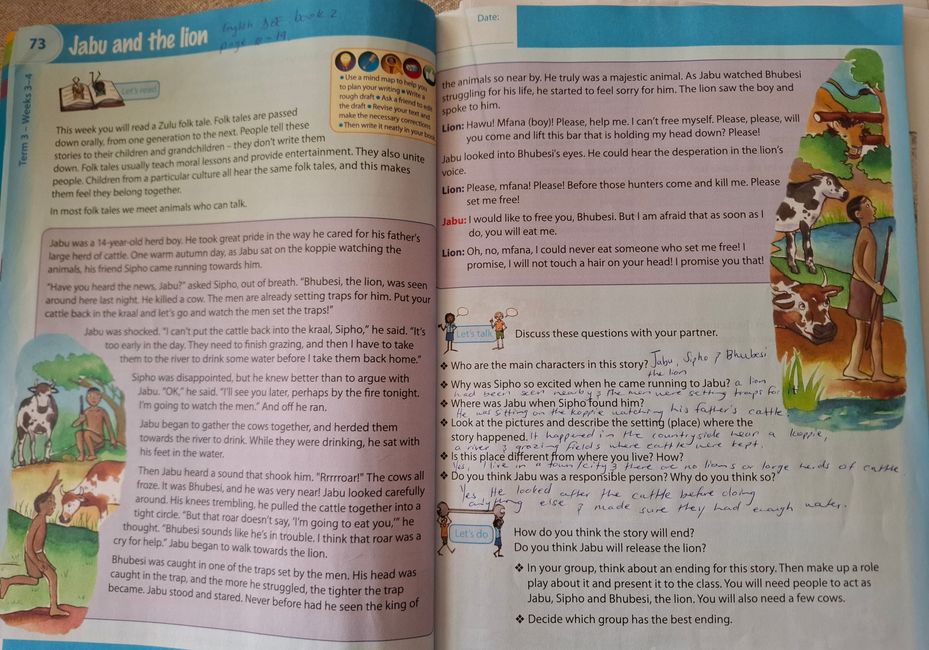 73
Jabu and the lion
English DBE book 2
Term 3 – Weeks 3–4
Let's read
• Use a mind map to help you
to plan your writing • Write a
rough draft • Ask a friend to edit
the draft • Revise your text and
make the necessary corrections
• Then write it neatly in your book
This week you will read a Zulu folk tale. Folk tales are passed
down orally, from one generation to the next. People tell these
stories to their children and grandchildren – they don't write them
down. Folk tales usually teach moral lessons and provide entertainment. They also unite
people. Children from a particular culture all hear the same folk tales, and this makes
them feel they belong together.
In most folk tales we meet animals who can talk.
Jabu was a 14-year-old herd boy. He took great pride in the way he cared for his father's
large herd of cattle. One warm autumn day, as Jabu sat on the koppie watching the
animals, his friend Sipho came running towards him.
"Have you heard the news, Jabu?" asked Sipho, out of breath. "Bhubesi, the lion, was seen
around here last night. He killed a cow. The men are already setting traps for him. Put your
cattle back in the kraal and let's go and watch the men set the traps!"
Jabu was shocked. "I can't put the cattle back into the kraal, Sipho," he said. "It's
too early in the day. They need to finish grazing, and then I have to take
them to the river to drink some water before I take them back home."
Sipho was disappointed, but he knew better than to argue with
Jabu. "OK," he said. "I'll see you later, perhaps by the fire tonight.
I'm going to watch the men." And off he ran.
Jabu began to gather the cows together, and herded them
towards the river to drink. While they were drinking, he sat with
his feet in the water.
Then Jabu heard a sound that shook him. "Rrrrroar!" The cows all
froze. It was Bhubesi, and he was very near! Jabu looked carefully
around. His knees trembling, he pulled the cattle together into a
tight circle. "But that roar doesn't say, 'I'm going to eat you,'" he
thought. "Bhubesi sounds like he's in trouble. I think that roar was a
cry for help." Jabu began to walk towards the lion.
Bhubesi was caught in one of the traps set by the men. His head was
caught in the trap, and the more he struggled, the tighter the trap
became. Jabu stood and stared. Never before had he seen the king of
Date:
the animals so near by. He truly was a majestic animal. As Jabu watched Bhubesi
struggling for his life, he started to feel sorry for him. The lion saw the boy and
spoke to him.
Lion: Hawu! Mfana (boy)! Please, help me. I can't free myself. Please, please, will
you come and lift this bar that is holding my head down? Please!
Jabu looked into Bhubesi's eyes. He could hear the desperation in the lion's
voice.
Lion: Please, mfana! Please! Before those hunters come and kill me. Please
set me free!
Jabu: I would like to free you, Bhubesi. But I am afraid that as soon as I
do, you will eat me.
Lion: Oh, no, mfana, I could never eat someone who set me free! I
promise, I will not touch a hair on your head! I promise you that!
Let's talk
Discuss these questions with your partner.
❖ Who are the main characters in this story? Jabu, Sipho & Bhubesi
the lion
❖ Why was Sipho so excited when he came running to Jabu? a lion
had been seen nearby & the men were setting traps for it
❖ Where was Jabu when Sipho found him?
He was sitting on the koppie watching his father's cattle.
❖ Look at the pictures and describe the setting (place) where the
story happened. It happened in the countryside near a koppie,
a river & grazing fields where cattle were kept.
❖ Is this place different from where you live? How?
Yes, I live in a town/city & there are no lions or large herds of cattle
❖ Do you think Jabu was a responsible person? Why do you think so?
Yes. He looked after the cattle before doing
anything else & made sure they had enough water.
Let's do
How do you think the story will end?
Do you think Jabu will release the lion?
❖ In your group, think about an ending for this story. Then make up a role
play about it and present it to the class. You will need people to act as
Jabu, Sipho and Bhubesi, the lion. You will also need a few cows.
❖ Decide which group has the best ending.